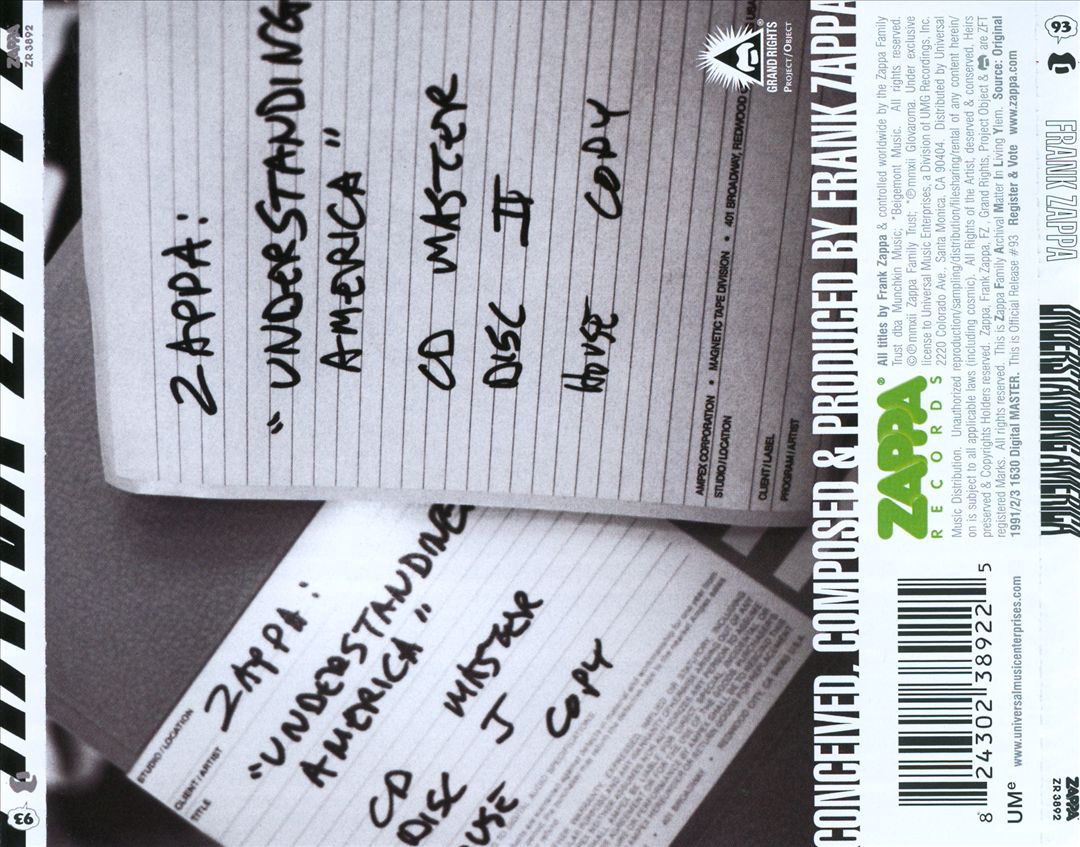 ZAPPA
ZR3892
93
ZAPPA:
"UNDERSTANDING
AMERICA"
CD MASTER
DISC II
HOUSE COPY
AMPEX CORPORATION • MAGNETIC TAPE DIVISION • 401 BROADWAY, REDWOOD
STUDIO/LOCATION
CLIENT/LABEL
PROGRAM/ARTIST
GRAND RIGHTS
PROJECT/OBJECT
STUDIO/LOCATION
CLIENT/ARTIST
TITLE
ZAPPA:
"UNDERSTANDING
AMERICA"
CD MASTER
DISC I
COPY
CONCEIVED, COMPOSED & PRODUCED BY FRANK ZAPPA
ZAPPA®
RECORDS
All titles by Frank Zappa & controlled worldwide by the Zappa Family
Trust dba Munchkin Music; *Beigemont Music. All rights reserved.
©℗mmxii Zappa Family Trust; *©mmxii Giovaroma. Under exclusive
license to Universal Music Enterprises, a Division of UMG Recordings, Inc.
2220 Colorado Ave., Santa Monica, CA 90404. Distributed by Universal
Music Distribution. Unauthorized reproduction/sampling/distribution/filesharing/rental of any content herein/
on is subject to all applicable laws (including cosmic). All Rights of the Artist, deserved & conserved, Heirs
preserved & Copyrights Holders reserved. Zappa, Frank Zappa, FZ, Grand Rights, Project Object & are ZFT
registered Marks. All rights reserved. This is Zappa Family Archival Matter In Living Ylem. Source: Original
1991/2/3 1630 Digital MASTER. This is Official Release #93 Register & Vote www.zappa.com
8 24302 38922 5
UMe www.universalmusicenterprises.com
93
FRANK ZAPPA
UNDERSTANDING AMERICA
ZAPPA
ZR3892